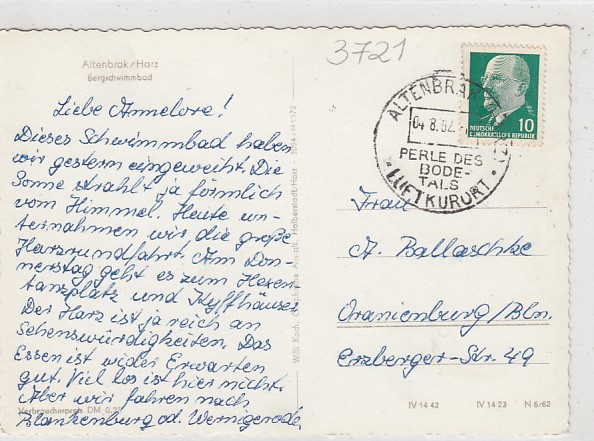 3721
Altenbrak/Harz
Bergschwimmbad
Liebe Annelore!
Dieses Schwimmbad haben
wir gestern eingeweiht. Die
Sonne strahlt ja förmlich
vom Himmel. Heute un-
ternahmen wir die große
Harzrundfahrt. Am Don-
nerstag geht es zum Hexen
tanzplatz und Kyffhäuser.
Der Harz ist ja reich an
Sehenswürdigkeiten. Das
Essen ist wider Erwarten
gut. Viel los ist hier nicht.
Aber wir fahren nach
Blankenburg od. Wernigerode.
Verbraucherpreis DM 0,20
Halberstadt/Harz
ALTENBRAK
04.8.62.
PERLE DES
BODE-
TALS
LUFTKURORT
10
DEUTSCHE
DEMOKRATISCHE REPUBLIK
Frau
A. Ballaschke
Oranienburg/Bln.
Erzberger-Str. 49
IV 14 42 IV 14 23 N 6/62